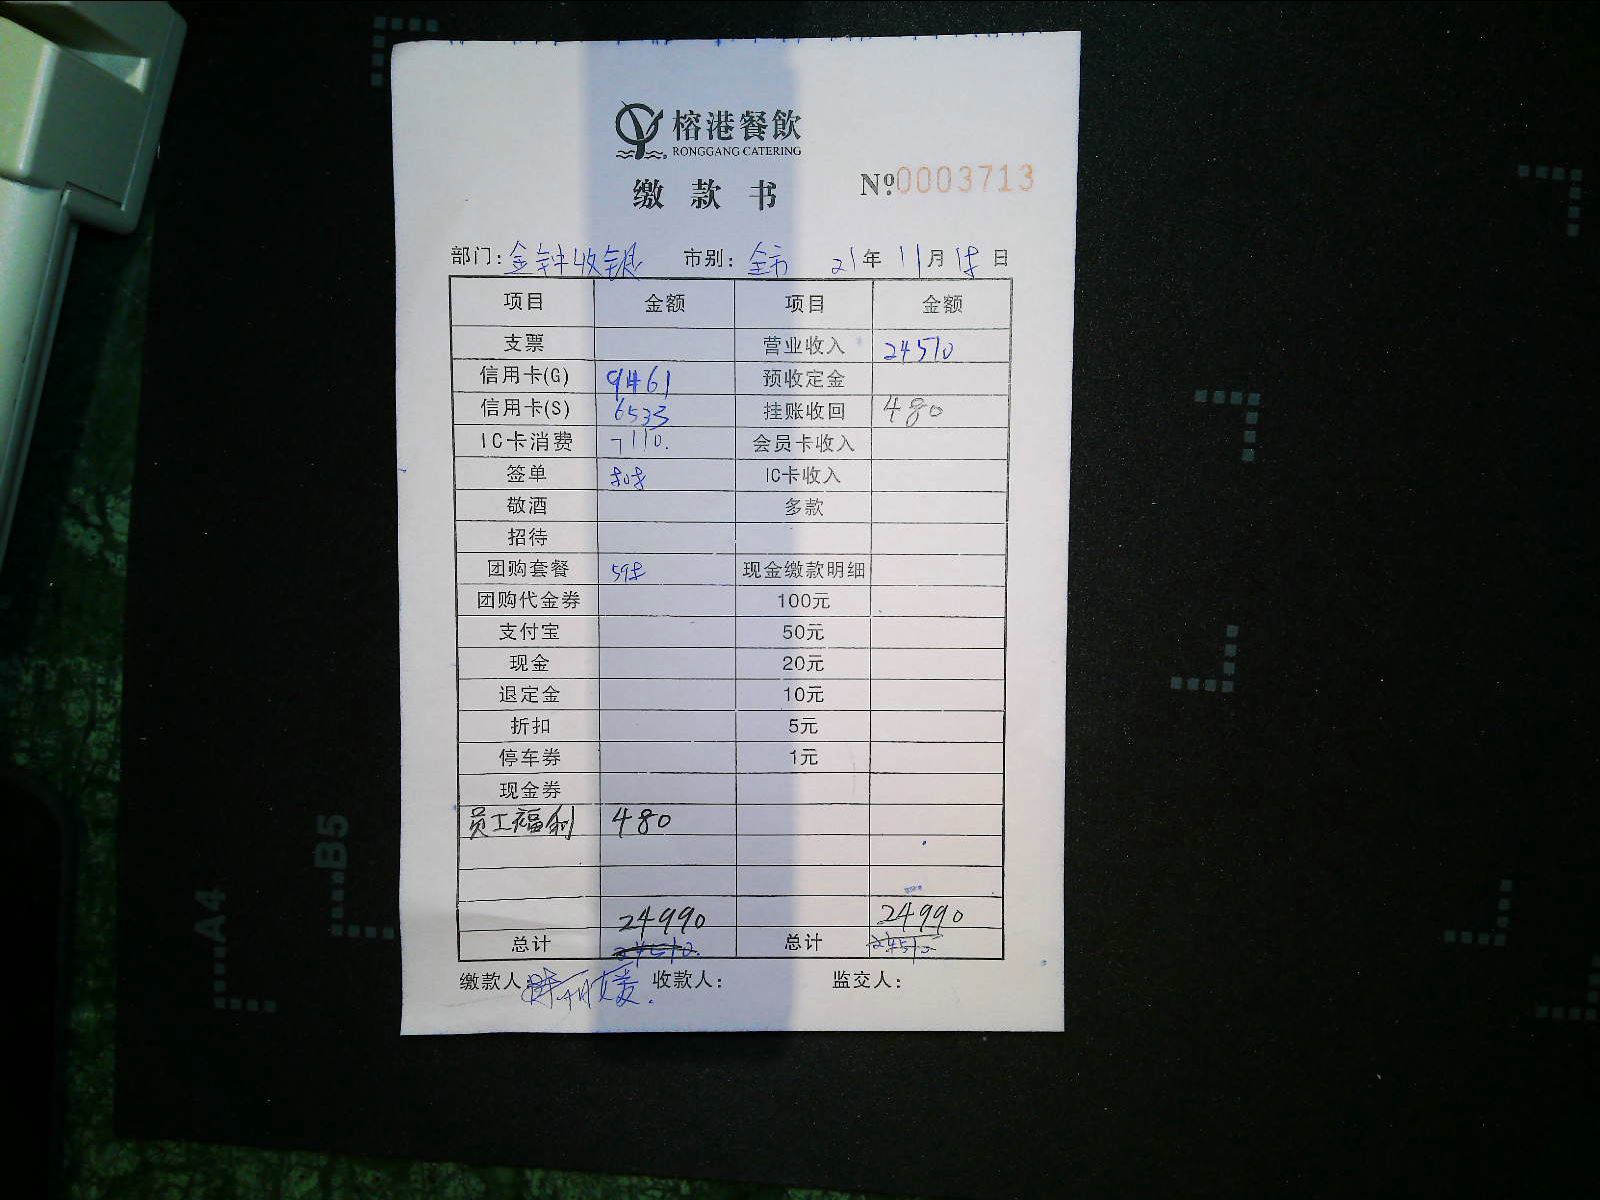 榕港餐飲
RONGGANG CATERING
缴款书
Nº0003713
部门:金钟收银 市别:全市 21年11月18日
项目 金额 项目 金额
支票 营业收入 24510
信用卡(G) 9461 预收定金
信用卡(S) 6533 挂账收回 480
IC卡消费 7110. 会员卡收入
签单 808 IC卡收入
敬酒 多款
招待
团购套餐 598 现金缴款明细
团购代金券 100元
支付宝 50元
现金 20元
退定金 10元
折扣 5元
停车券 1元
现金券
员工福利 480
24990 24990
总计 24510. 总计 24510
缴款人: 收款人: 监交人:
A4
B5